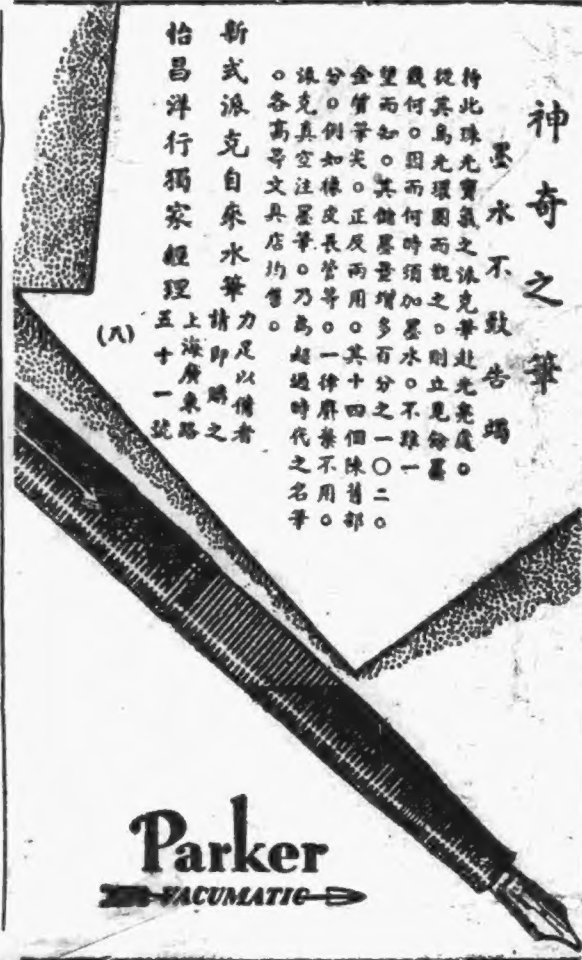 神奇之筆
墨水不致告竭
持此珠光寶氣之派克筆赴光亮處。
從其烏光環圈而觀之。則立見餘墨
幾何。因而何時須加墨水。不難一
望而知。其儲墨量增多百分之一〇二。
金質筆尖。正反兩用。其十四個陳舊部
分。例如橡皮長管等。一律廢棄不用。
派克真空注墨筆。乃為超過時代之名筆
。各高等文具店均售。
新式派克自來水筆
力足以備者
請即購之
怡昌洋行獨家經理
上海廣東路
五十一號
(八)
Parker
VACUMATIC